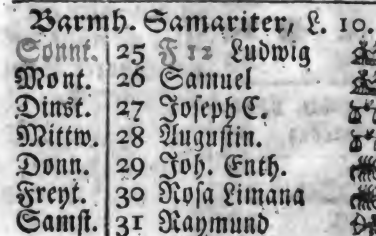 Barmh. Samariter, L. 10.
Sonnt. 25 F 12 Ludwig
Mont. 26 Samuel
Dinst. 27 Joseph C.
Mittw. 28 Augustin.
Donn. 29 Joh. Enth.
Freyt. 30 Rosa Limana
Samst. 31 Raymund